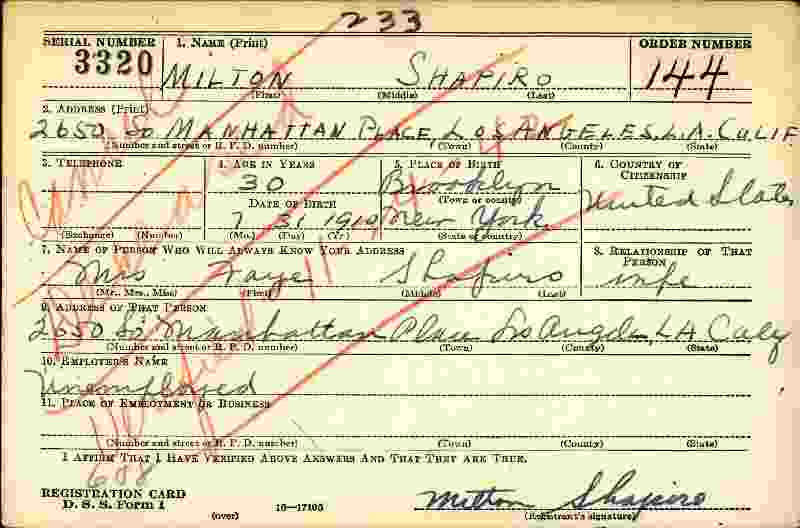 233
SERIAL NUMBER 1. NAME (Print) ORDER NUMBER
3320 MILTON SHAPIRO 144
(First) (Middle) (Last)
2. ADDRESS (Print)
2650 So MANHATTAN PLACE, LOS ANGELES, L.A. CALIF
(Number and street or R. F. D. number) (Town) (County) (State)
3. TELEPHONE 4. AGE IN YEARS 5. PLACE OF BIRTH 6. COUNTRY OF CITIZENSHIP
30 Brooklyn United States
DATE OF BIRTH (Town or county)
7 31 1910 New York
(Exchange) (Number) (Mo.) (Day) (Yr.) (State or country)
7. NAME OF PERSON WHO WILL ALWAYS KNOW YOUR ADDRESS 8. RELATIONSHIP OF THAT PERSON
Mrs Faye Shapiro wife
(Mr., Mrs., Miss) (First) (Middle) (Last)
9. ADDRESS OF THAT PERSON
2650 So Manhattan Place Los Angeles, LA Calif
(Number and street or R. F. D. number) (Town) (County) (State)
10. EMPLOYER'S NAME
Unemployed
11. PLACE OF EMPLOYMENT OR BUSINESS
(Number and street or R. F. D. number) (Town) (County) (State)
I AFFIRM THAT I HAVE VERIFIED ABOVE ANSWERS AND THAT THEY ARE TRUE.
REGISTRATION CARD
D. S. S. Form 1 16-17105 Milton Shapiro
(over) (Registrant's signature)